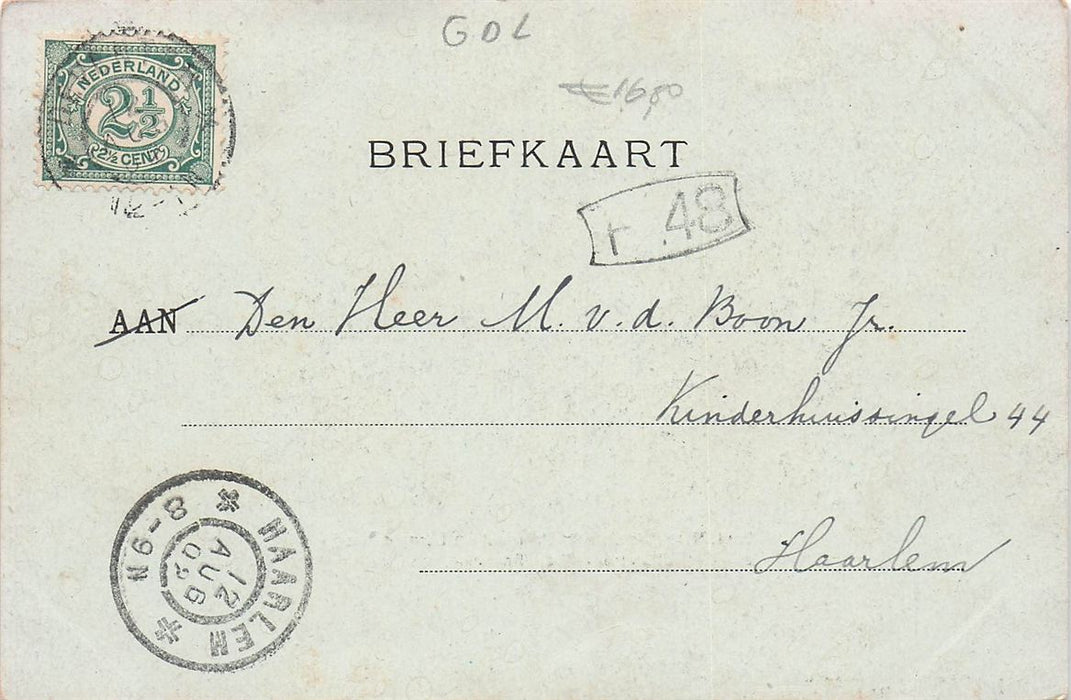 GDL
NEDERLAND
2½
2½ CENT
€16,80
BRIEFKAART
F.48
AAN Den Heer M. v. d. Boon Jr.
Kinderhuissingel 44
Haarlem
HAARLEM
12
AUG
02
8-9N